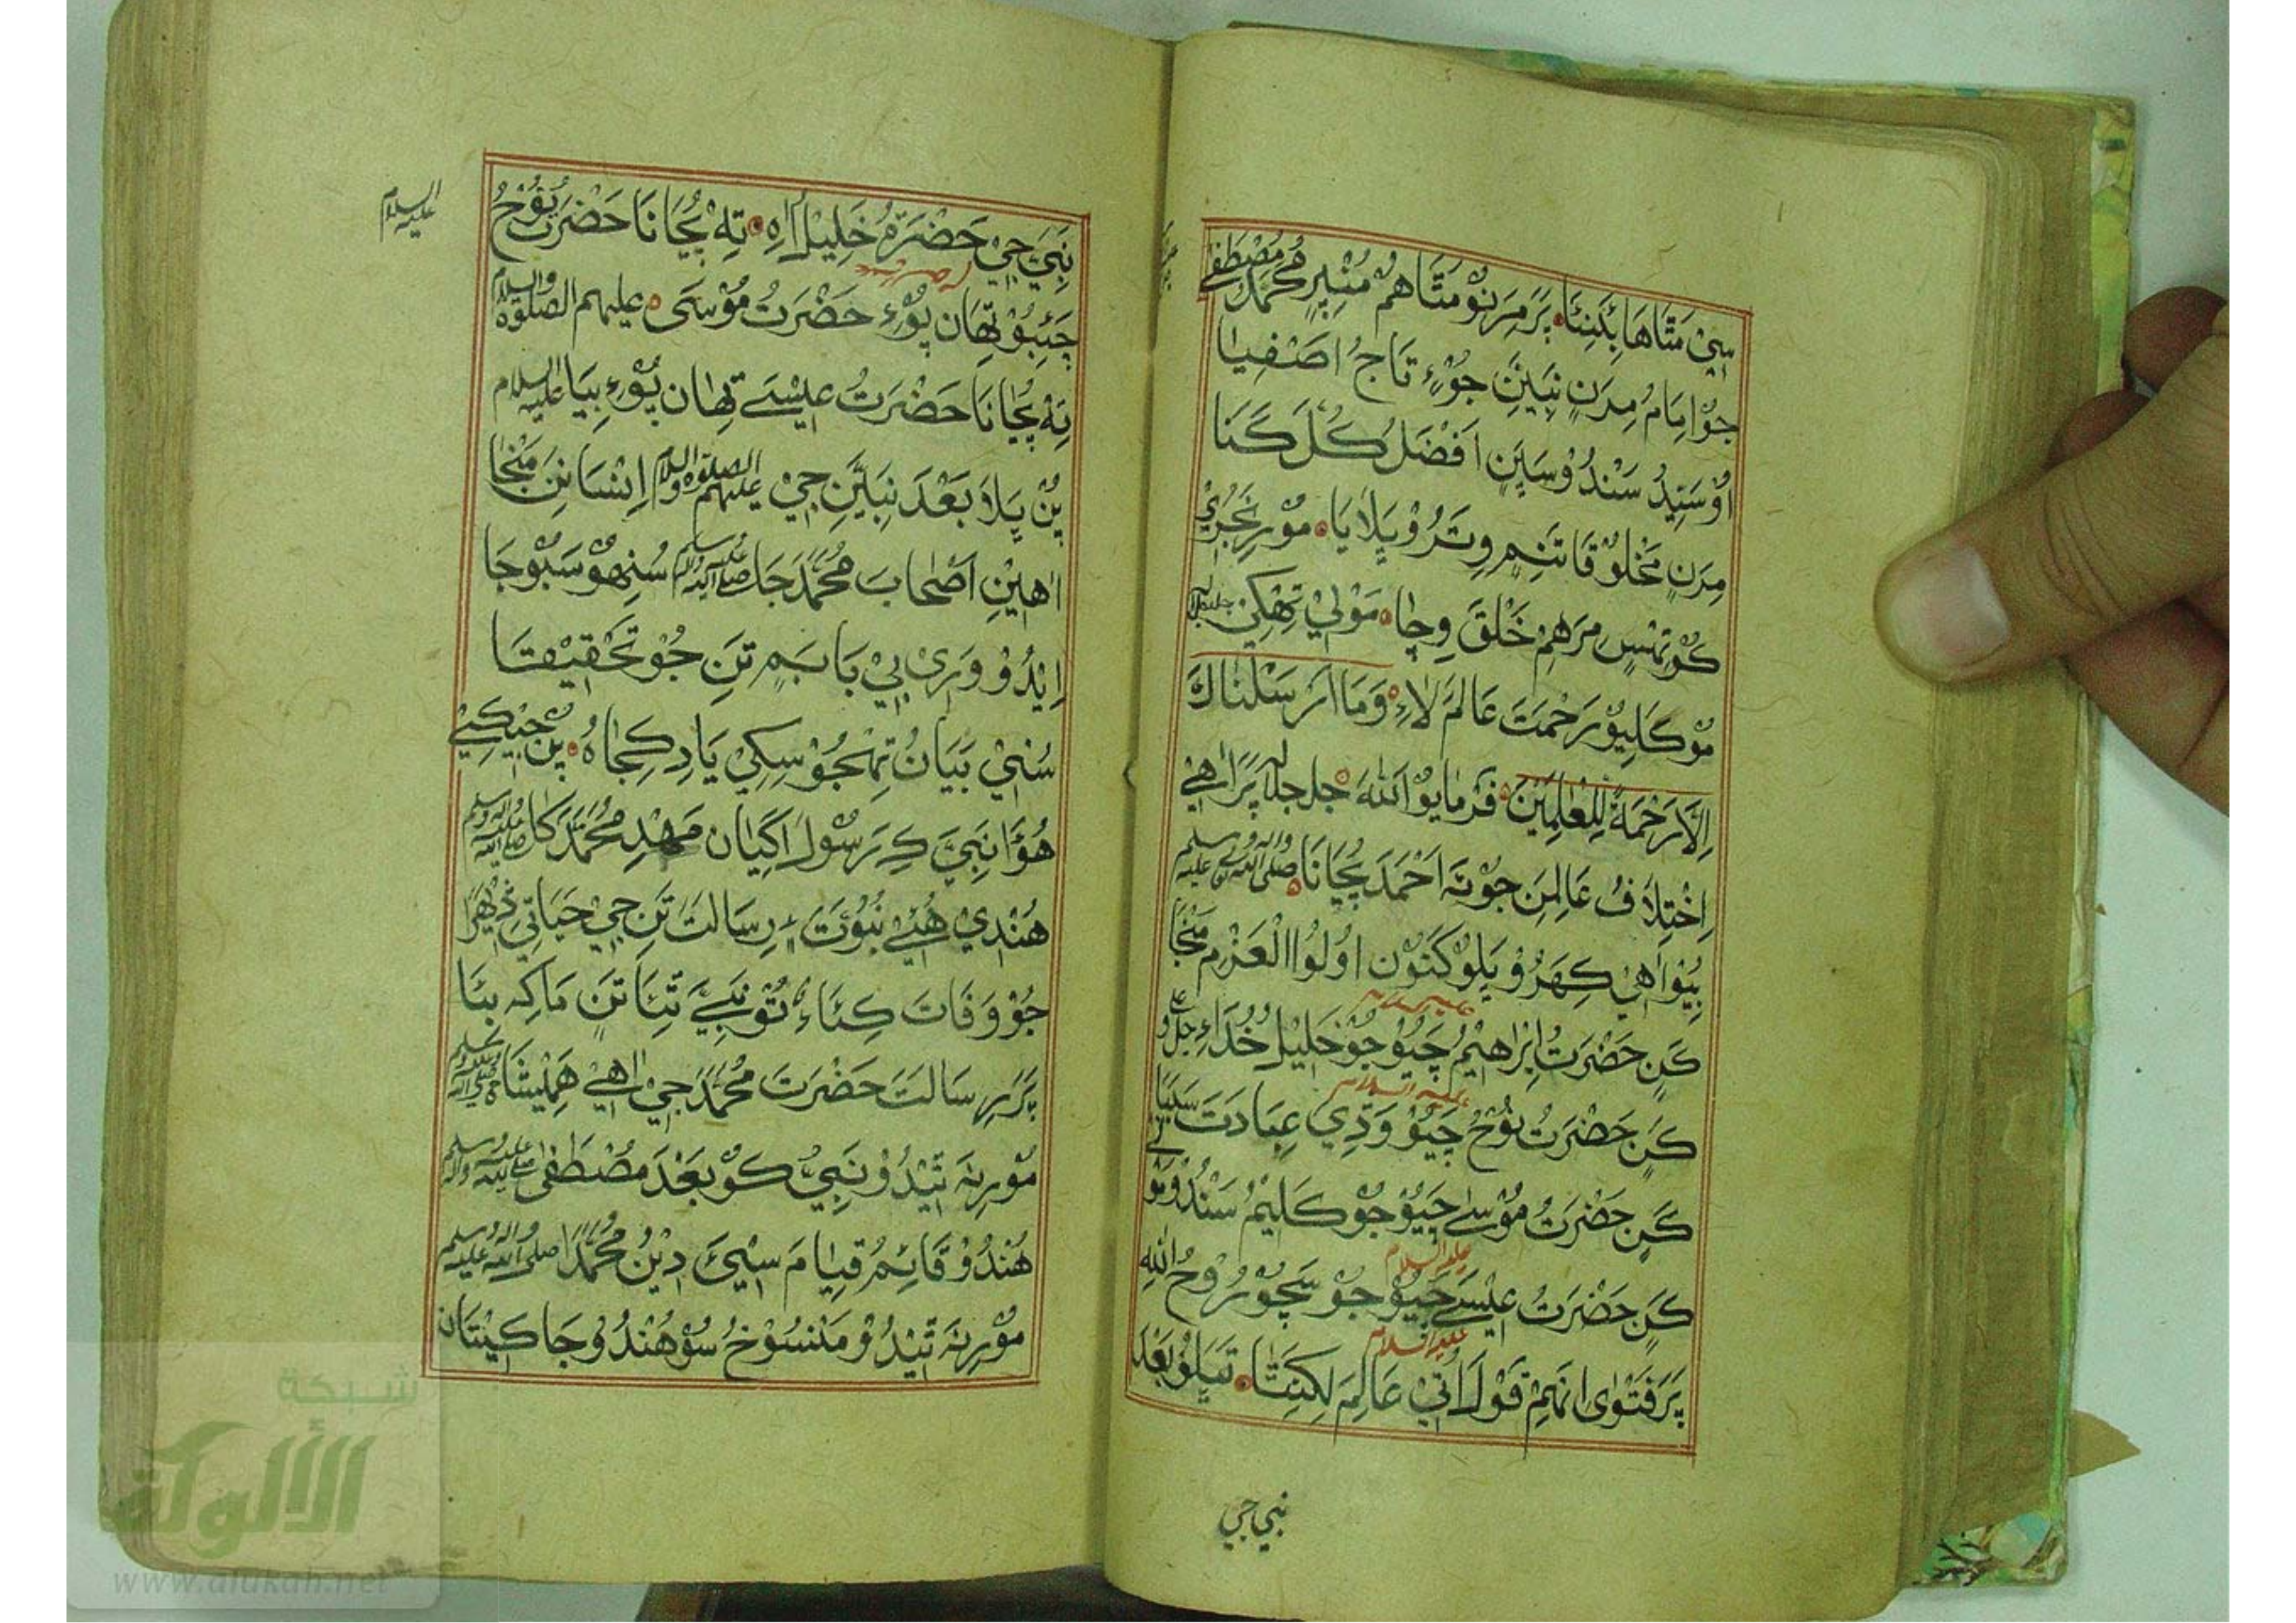 سِيْ مَتَاهَا ئِدَنِئَا پَرَ مِرَنِوْ مَتَاهُمْ مُنِيْرٍ مُحَمَّدْ مُصْطَفٰى
جُوْ اِمَامُ مِرَنِ نَبِيَنِ جُوْءٍ تَاجُ اصْفِيَا
اُوْ سَيِّدُ سَنْدُوْ سَيِّنِ اَفْضَلُ كُلَ كَنَا
مِرَنِ مَخْلُوْقَاتَنِمِ وِتَرُوْ پِلَايَا مُوْرِ نَجُرِيْ
كُوْ تِهْسِ مِرَهِمْ خَلْقَ وِچَا مَوْلِيْ تِهْكِنِ
مُوْكَلِيُوْ رَحْمَتَ عَالَمَ لَاءِ وَمَا اَرْسَلْنَاكَ
اِلَّا رَحْمَةً لِلْعٰلَمِيْنَ فَرْمَايُوْ اَللهَ جل جلاله پَرَ اٰهِيْ
اِخْتِلَافُ عَالِمَنِ جُوْتَه اَحْمَدَ پُڄَانَا صلى الله عليه وسلم
بِيُوْ اٰهِيْ كِهَرُوْ پِلُوْ كَنُوْنِ اُولُوا الْعَزْمِ مَنْجَا
كَنِ حَضْرَتُ اِبْرَاهِيْمُ چَيُوْ جُوْ خَلِيْلُ خُدَاءِ
كَنِ حَضْرَتُ نُوْحُ چَيُوْ وَڎِي عِبَادَتَ
كَنِ حَضْرَتُ مُوْسٰى چَيُوْ جُوْ كَلِيْمُ سَنْدُوْ
كَنِ حَضْرَتُ عِيْسٰے چَيُوْ جُوْ سَچُوْ رُوْحُ الله
پَرَ فَتْوٰى انَهِمْ قَوْلَ اُتِيْ عَالِمَ لِكِنِتَا تَپِلُوْ بَعْدَ
نبي جي
نَبِيَ جِيْ حَضْرَةُ خَلِيْلُ اللهِ تِه پُڄَانَا حَضْرَتُ نُوْحُ
عليه السلام
چَئِبُوْ تِهَان پُوْءِ حَضْرَتُ مُوْسٰى عليهم الصلوة والسلام
تِه پُڄَانَا حَضْرَتُ عِيْسٰے تِهَان پُوْءِ بِيَا عليه السلام
پُنِ پِلَا بَعْدَ نَبِيَّنِ جِيْ عليهم الصلوة والسلام اِنْسَانَنِ مَنْجَا
اٰهِيْنِ اَصْحَابَ مُحَمَّدَ جَا صلى الله عليه وآله وسلم سُنِهُوْ سَبُوْجَا
اِيْدُوْ وَرِىْ بِيْ بَابَمِ تَنِ جُوْ تَحْقِيْقَتَا
سُنِيْ بَيَانُ تِهْجُوْ سِكِيْ يَادِ كِجَاهُ پُنِ جِيْكِيْ
هُوَا نَبِيَ كِ رَسُوْلَ اڳِيَان مَهْدِ مُحَمَّدَ كَا صلى الله عليه وسلم
هُنْدِيْ هُئِيْ نُبُوَّتَ ءِ رِسَالَتَ تَنِ جِيْ حَيَاتِيْ
جُوْ وَفَاتَ كِئَاءِ تُوْ نَبِيَ تِئَا تَنِ مَاكِه بِيَا
پَرَ رِسَالَتَ حَضْرَتَ مُحَمَّدَ جِيْ اٰهِيْ هَمِيْشَا
مُوْرِنَه تِيْدُوْ نَبِيُّ كُوْ بَعْدَ مُصْطَفٰى صلى الله عليه وآله وسلم
هُنْدُوْ قَائِمُ قِيَامَ سِيْئَ دِيْنُ مُحَمَّدَا صلى الله عليه وآله وسلم
مُوْرِنَه تِيْدُوْ مَنْسُوْخُ سُوْ هُنْدُوْ جَا كِيْتَان
شبكة
الألوكة
www.alukah.net